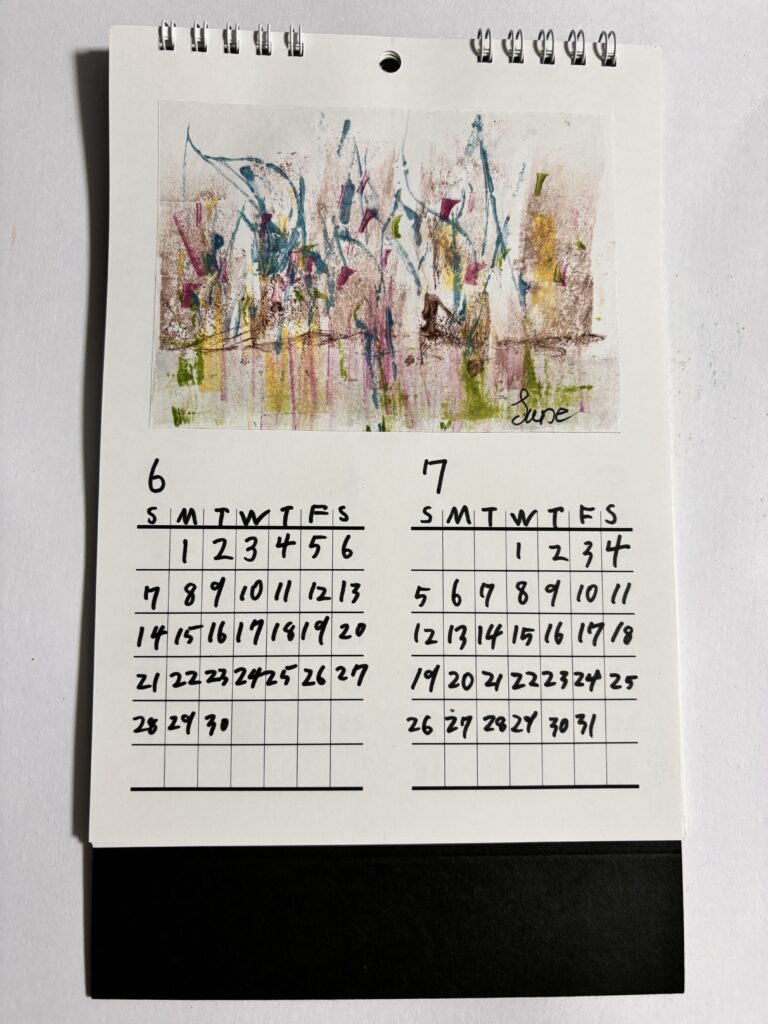 June
6
S M T W T F S
1 2 3 4 5 6
7 8 9 10 11 12 13
14 15 16 17 18 19 20
21 22 23 24 25 26 27
28 29 30
7
S M T W T F S
1 2 3 4
5 6 7 8 9 10 11
12 13 14 15 16 17 18
19 20 21 22 23 24 25
26 27 28 29 30 31